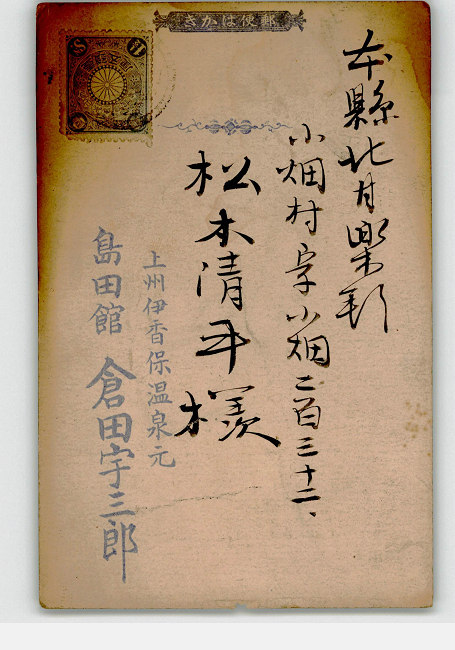 郵便はかき
本縣北甘樂郡
小畑村字小畑二百三十二、
松木清平様
上州伊香保温泉元
島田館 倉田宇三郎